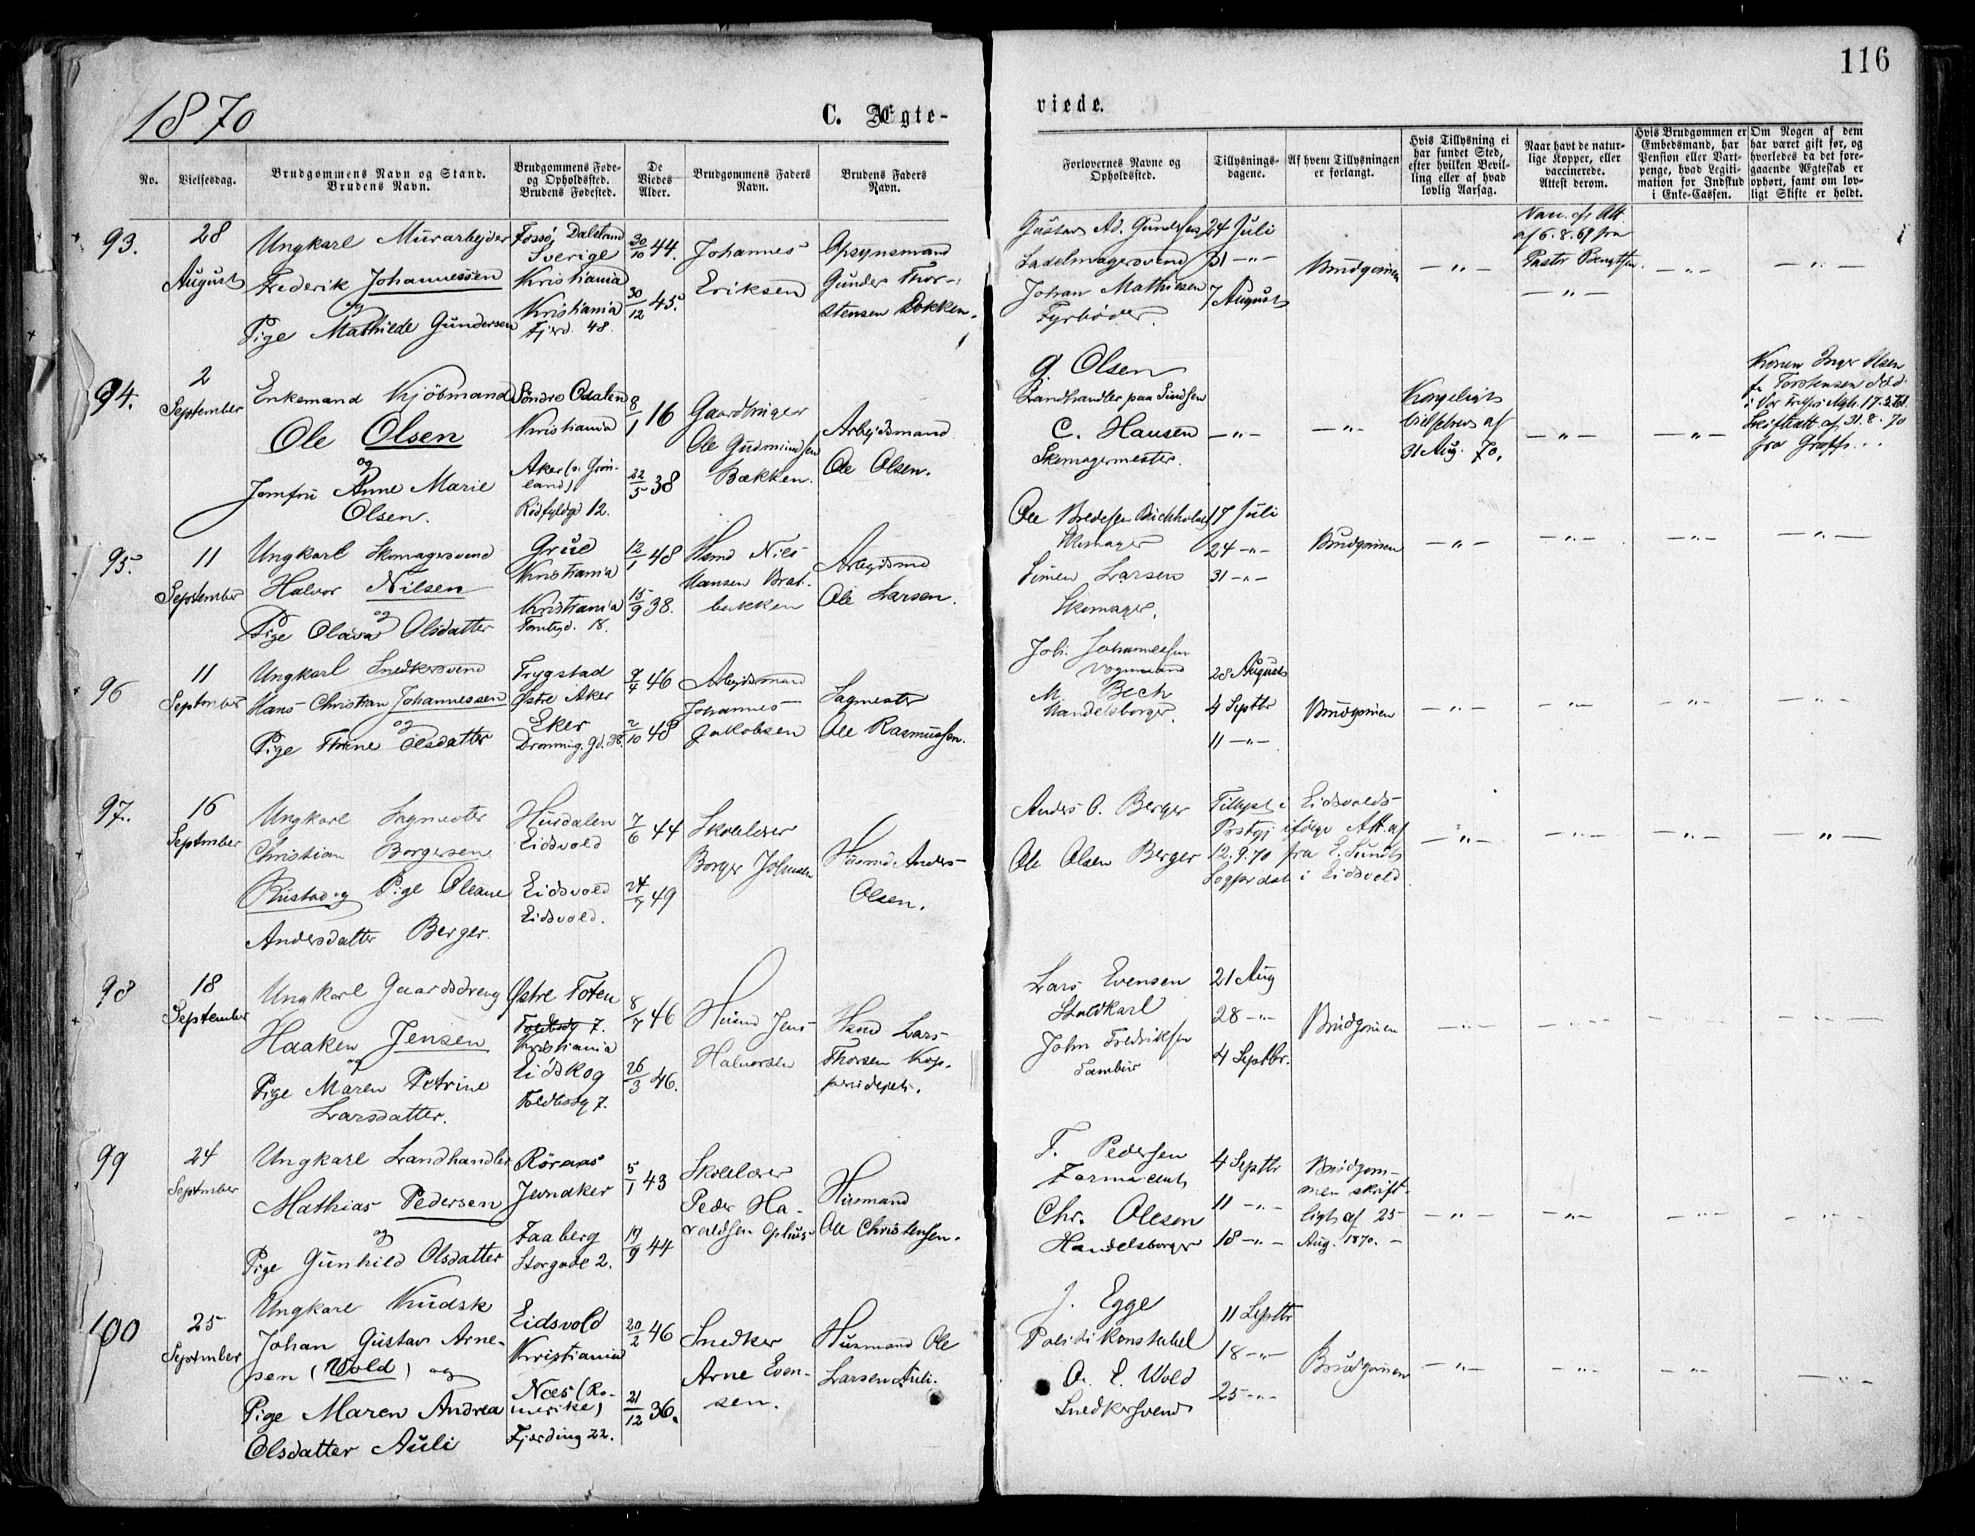 116
1870
C. Ægte-
viede.
No.
Vielsesdag.
Brudgommens Navn og Stand.
Brudens Navn.
Brudgommens Føde-
og Opholdssted.
Brudens Fødested.
De
Viedes
Alder.
Brudgommens Faders
Navn.
Brudens Faders
Navn.
Forlovernes Navne og
Opholdssted.
Tillysnings-
dagene.
Af hvem Tillysningen
er forlangt.
Hvis Tillysning ei
har fundet Sted,
efter hvilken Bevil-
ling eller af hvad
lovlig Aarsag.
Naar havt de natur-
lige Kopper, eller
vaccinerede.
Attest derom.
Hvis Brudgommen er
Embedsmand, har
Pension eller Vart-
penge, hvad Legiti-
mation for Indskud
i Enke-Cassen.
Om Nogen af dem
har været gift før, og
hvorledes da det fore-
gaaende Ægteskab er
ophørt, samt om lov-
ligt Skifte er holdt.
93.
28
August
Ungkarl Murarbejder
Frederik Johannessen
og
Pige Mathilde Gundersen
Dalsland
Sverige
Kristiania
Kristiania
Fjerd. 48.
30/10 44.
30/12 45.
Johannes
Eriksen
Opsynsmand
Gunder Thor-
stensen Dokken.
Gustav Ad. Gundersen
Sadelmagersvend
Johan Mathiesen
Fyrbøder.
24 Juli
31 -"-
7 August
Brudgommen
-"-
af 6.8.69 fra
Pastor
-"-
-"-
-"-
94.
2
September
Enkemand Kjöbmand
Ole Olsen
og
Jomfru Anne Marie
Olsen.
Söndre Odalen
Kristiania
Aker (v. Grön-
land)
Rödfyldgd 12.
8/1 16
22/5 38
Gaardbruger
Ole Gudmundsen
Bækken.
Arbejdsmand
Ole Olsen.
G. Olsen
Landhandler paa
C. Hansen
Skomagermester.
-"-
-"-
Kongeligt
af
31 Aug. 70.
-"-
-"-
Konen Inger Olsen
f. Torstensen död
i Vor Frelsers
af 31.8.70
fra
95.
11
September
Ungkarl Skomagersvend
Halvor Nilsen
og
Pige Olava Olsdatter
Grue
Kristiania
Kristiania
Tomtegd. 18.
12/1 48
15/9 38.
Hsmd Nils
Hansen Brat-
bakken
Arbejdsmd
Ole Larsen.
Ole Bredesen
Skomager
Simen Larsen
Skomager.
17 Juli
24 -"-
31 -"-
Brudgommen
-"-
-"-
-"-
-"-
96
11
September
Ungkarl Snedkersvend
Hans Christian Johannessen
og
Pige Thrine Olsdatter
Trygstad
Østre Aker
Eker
Dronning. gd. 38.
9/4 46
2/10 48
Arbejdsmand
Johannes
Jakobsen
Sagmester
Ole Rasmussen.
Joh. Johannessen
Vognmand
M. Bech
Handelsborger.
28 August
4 Septbr
11 -"-
Brudgommen
-"-
-"-
-"-
-"-
97.
16
September
Ungkarl Sagmester
Christian Borgersen
Rustad og Pige Oleane
Andersdatter Berger.
Hurdalen
Eidsvold
Eidsvold
Eidsvold.
7/6 44
24/7 49
Skolelærer
Borger Johnsen
Husmd. Anders
Olsen.
Anders O. Berger
Ole Olsen Berger
Tillyst i Eidsvolds
Prstgj ifölge Att. af
12.9.70 fra E. Sundt
Sogneprest i Eidsvold
-"-
-"-
-"-
-"-
98
18
September
Ungkarl Gaardsdreng
Haaken Jensen
og
Pige Maren Petrine
Larsdatter.
Østre Toten
Toldbodg 7.
Kristiania
Eidskog
Toldbodg 7.
8/7 46
26/3 46.
Husmd Jens
Halvorsen
Hsmd Lars
Thorsen Kop-
perudejet.
Lars Evensen
Staldkarl
John Fredriksen
Tambur
21 Aug
28 -"-
4 Septbr.
Brudgommen
-"-
-"-
-"-
-"-
99
24
September
Ungkarl Landhandler
Mathias Pedersen
og
Pige Gunhild Olsdatter
Röraas
Jevnaker
Faaberg
Storgade 2.
5/1 43
19/9 44
Skolelærer
Peder Ha-
raldsen Ophus
Husmand
Ole Christensen.
T. Pedersen
Farmaceut
Chr. Olesen
Handelsborger
4 Septbr
11 -"-
18 -"-
Brudgom-
men skrift-
ligt af 25
Aug. 1870. -
-"-
-"-
-"-
-"-
100
25
September
Ungkarl Kudsk
Johan Gustav Arne-
sen (Wold) og
Pige Maren Andrea
Olsdatter Auli
Eidsvold
Kristiania
Næs (Ro-
merike)
Fjerding 22.
20/2 46
21/12 36.
Snedker
Arne Even-
sen.
Husmand Ole
Larsen Auli.
J. Egge
Politikonstabel
A. E. Wold
Snedkersvend
11 Septbr
18 -"-
25 -"-
Brudgommen
-"-
-"-
-"-
-"-